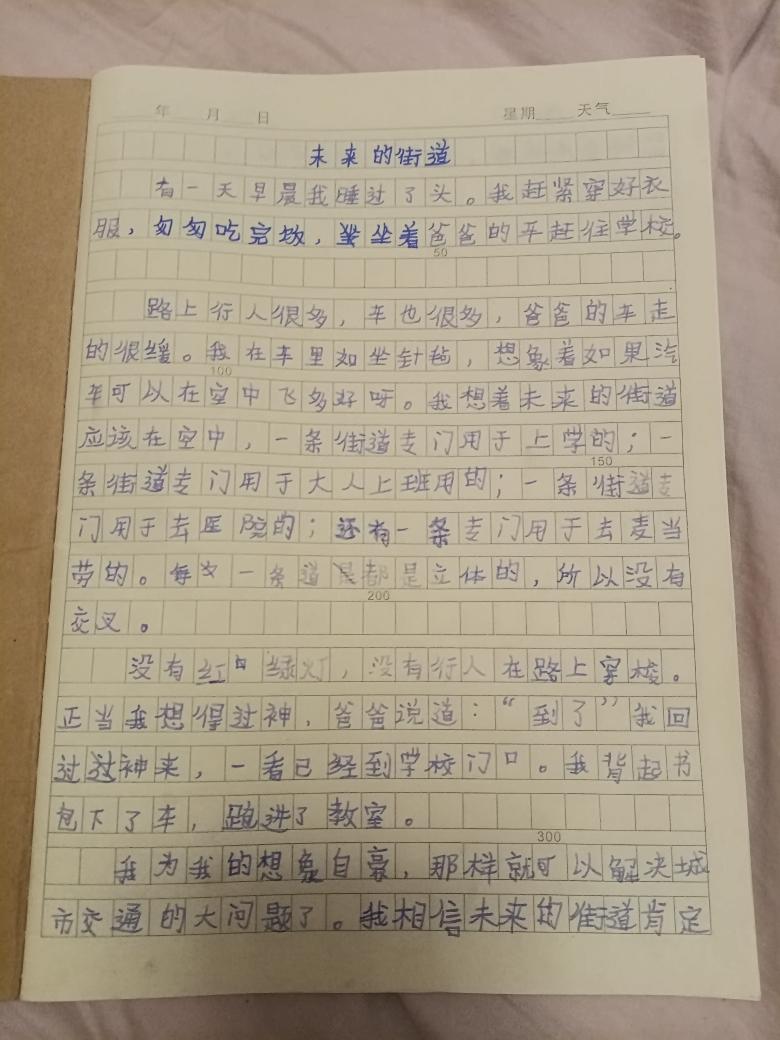 年 月 日 星期 天气
未来的街道
有一天早晨我睡过了头。我赶紧穿好衣
服，匆匆吃完饭，坐坐着爸爸的车赶往学校。
50
路上行人很多，车也很多，爸爸的车走
的很缓。我在车里如坐针毡，想象着如果汽
100
车可以在空中飞多好呀。我想着未来的街道
应该在空中，一条街道专门用于上学的；一
150
条街道专门用于大人上班用的；一条街道专
门用于去医院的；还有一条专门用于去麦当
劳的。每一条道都是立体的，所以没有
200
交叉。
没有红绿灯，没有行人在路上穿梭。
正当我想得过神，爸爸说道：“到了”我回
过过神来，一看已经到学校门口。我背起书
包下了车，跑进了教室。
300
我为我的想象自豪，那样就可以解决城
市交通的大问题了。我相信未来的街道肯定